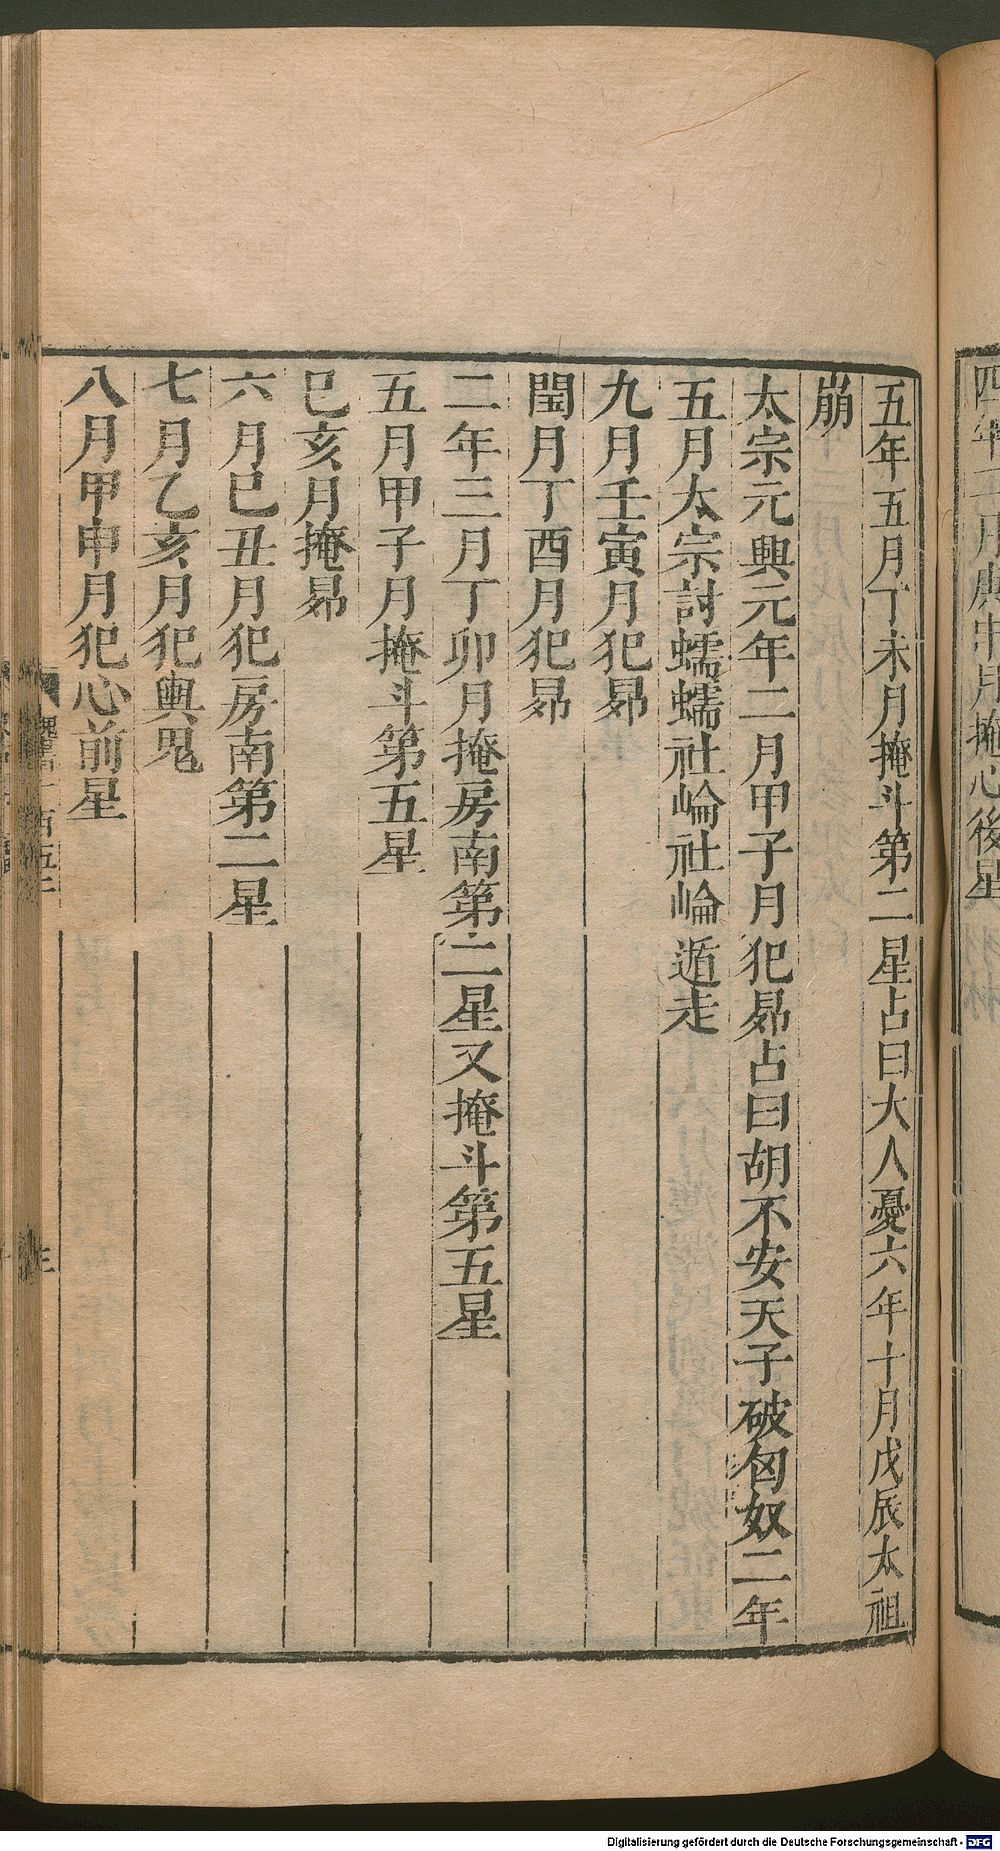 四年
月掩心後星
五年五月丁未月掩斗第二星占曰大人憂六年十月戊辰太祖
崩
太宗元興元年二月甲子月犯昴占曰胡不安天子破匈奴二年
五月太宗討蠕蠕社崘社崘遁走
九月壬寅月犯昴
閏月丁酉月犯昴
二年三月丁卯月掩房南第二星又掩斗第五星
五月甲子月掩斗第五星
巳亥月掩昴
六月巳丑月犯房南第二星
七月乙亥月犯輿鬼
八月甲申月犯心前星
Digitalisierung gefördert durch die Deutsche Forschungsgemeinschaft - DFG